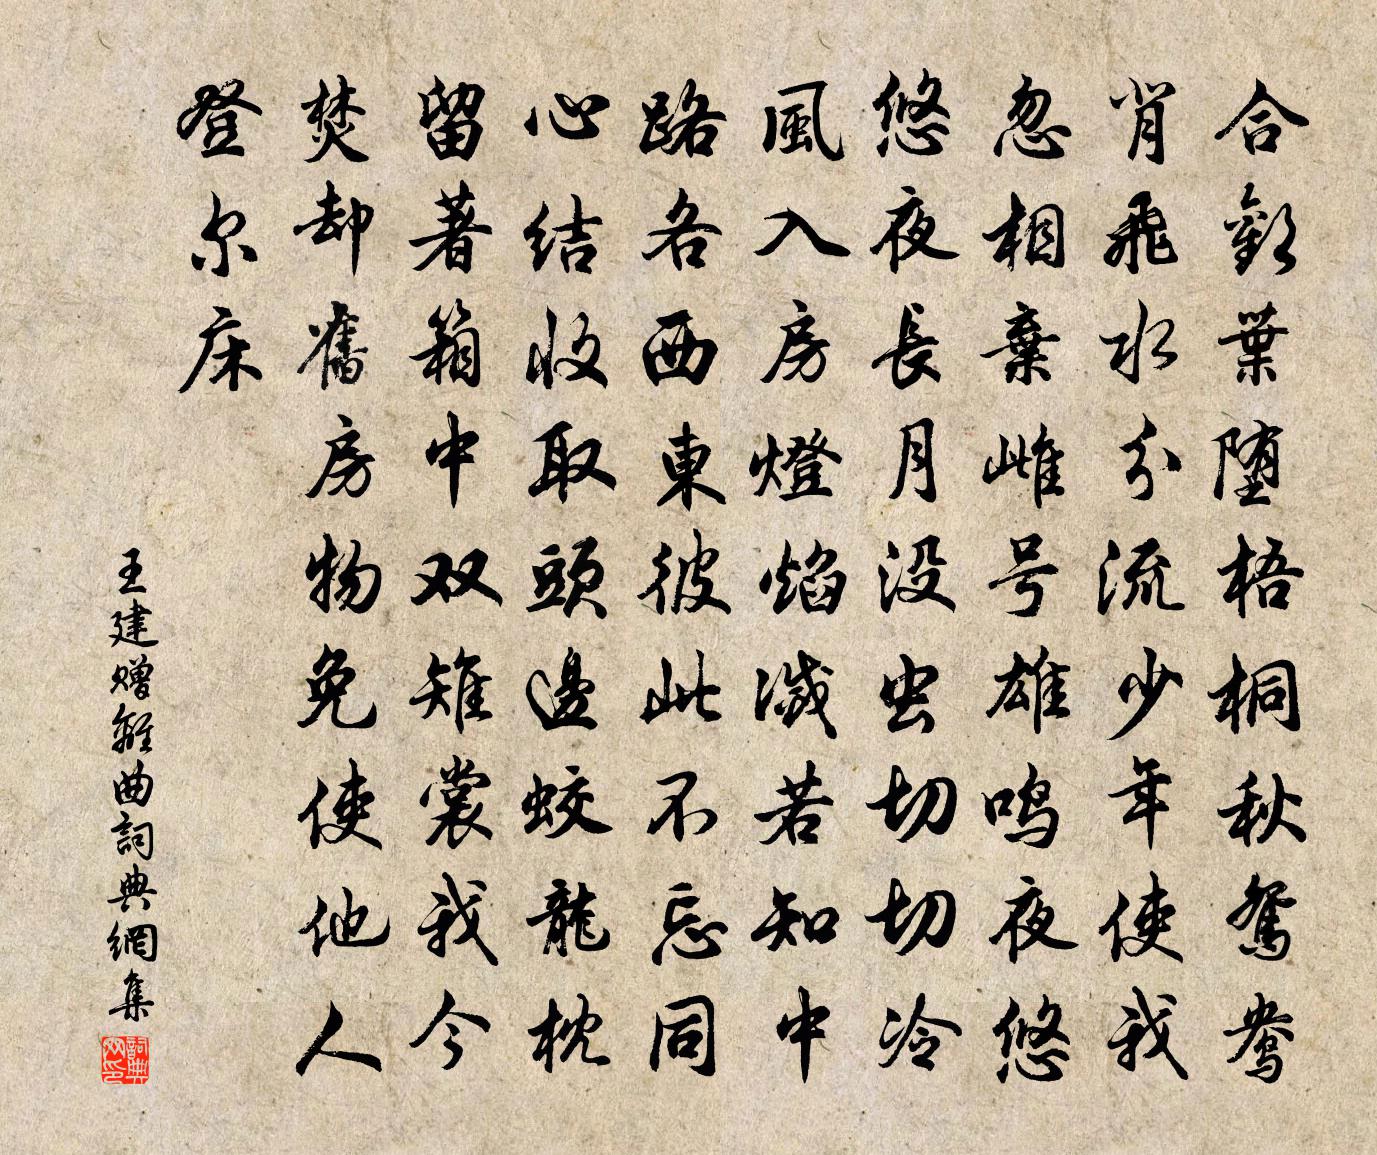 合歡葉墮梧桐秋鴛鴦
背飛水分流少年使我
忽相棄雌号雄鳴夜悠
悠夜長月没虫切切冷
風入房燈焰滅若知中
路各西東彼此不忘同
心結收取頭邊蛟龍枕
留著箱中双雉裳我今
焚却舊房物免使他人
登尔床
王建贈離曲詞典網集
詞典网印